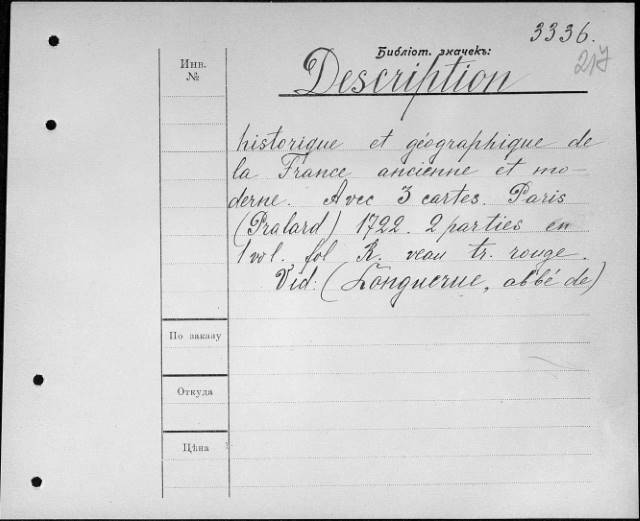 3336.
Библіот. значекъ:
217
Инв.
№
Description
historique et géographique de
la France ancienne et mo-
derne. Avec 3 cartes. Paris
(Pralard) 1722. 2 parties en
1 vol. fol R. veau tr. rouge.
Vid: (Longuerue, abbé de)
По заказу
Откуда
Цѣна